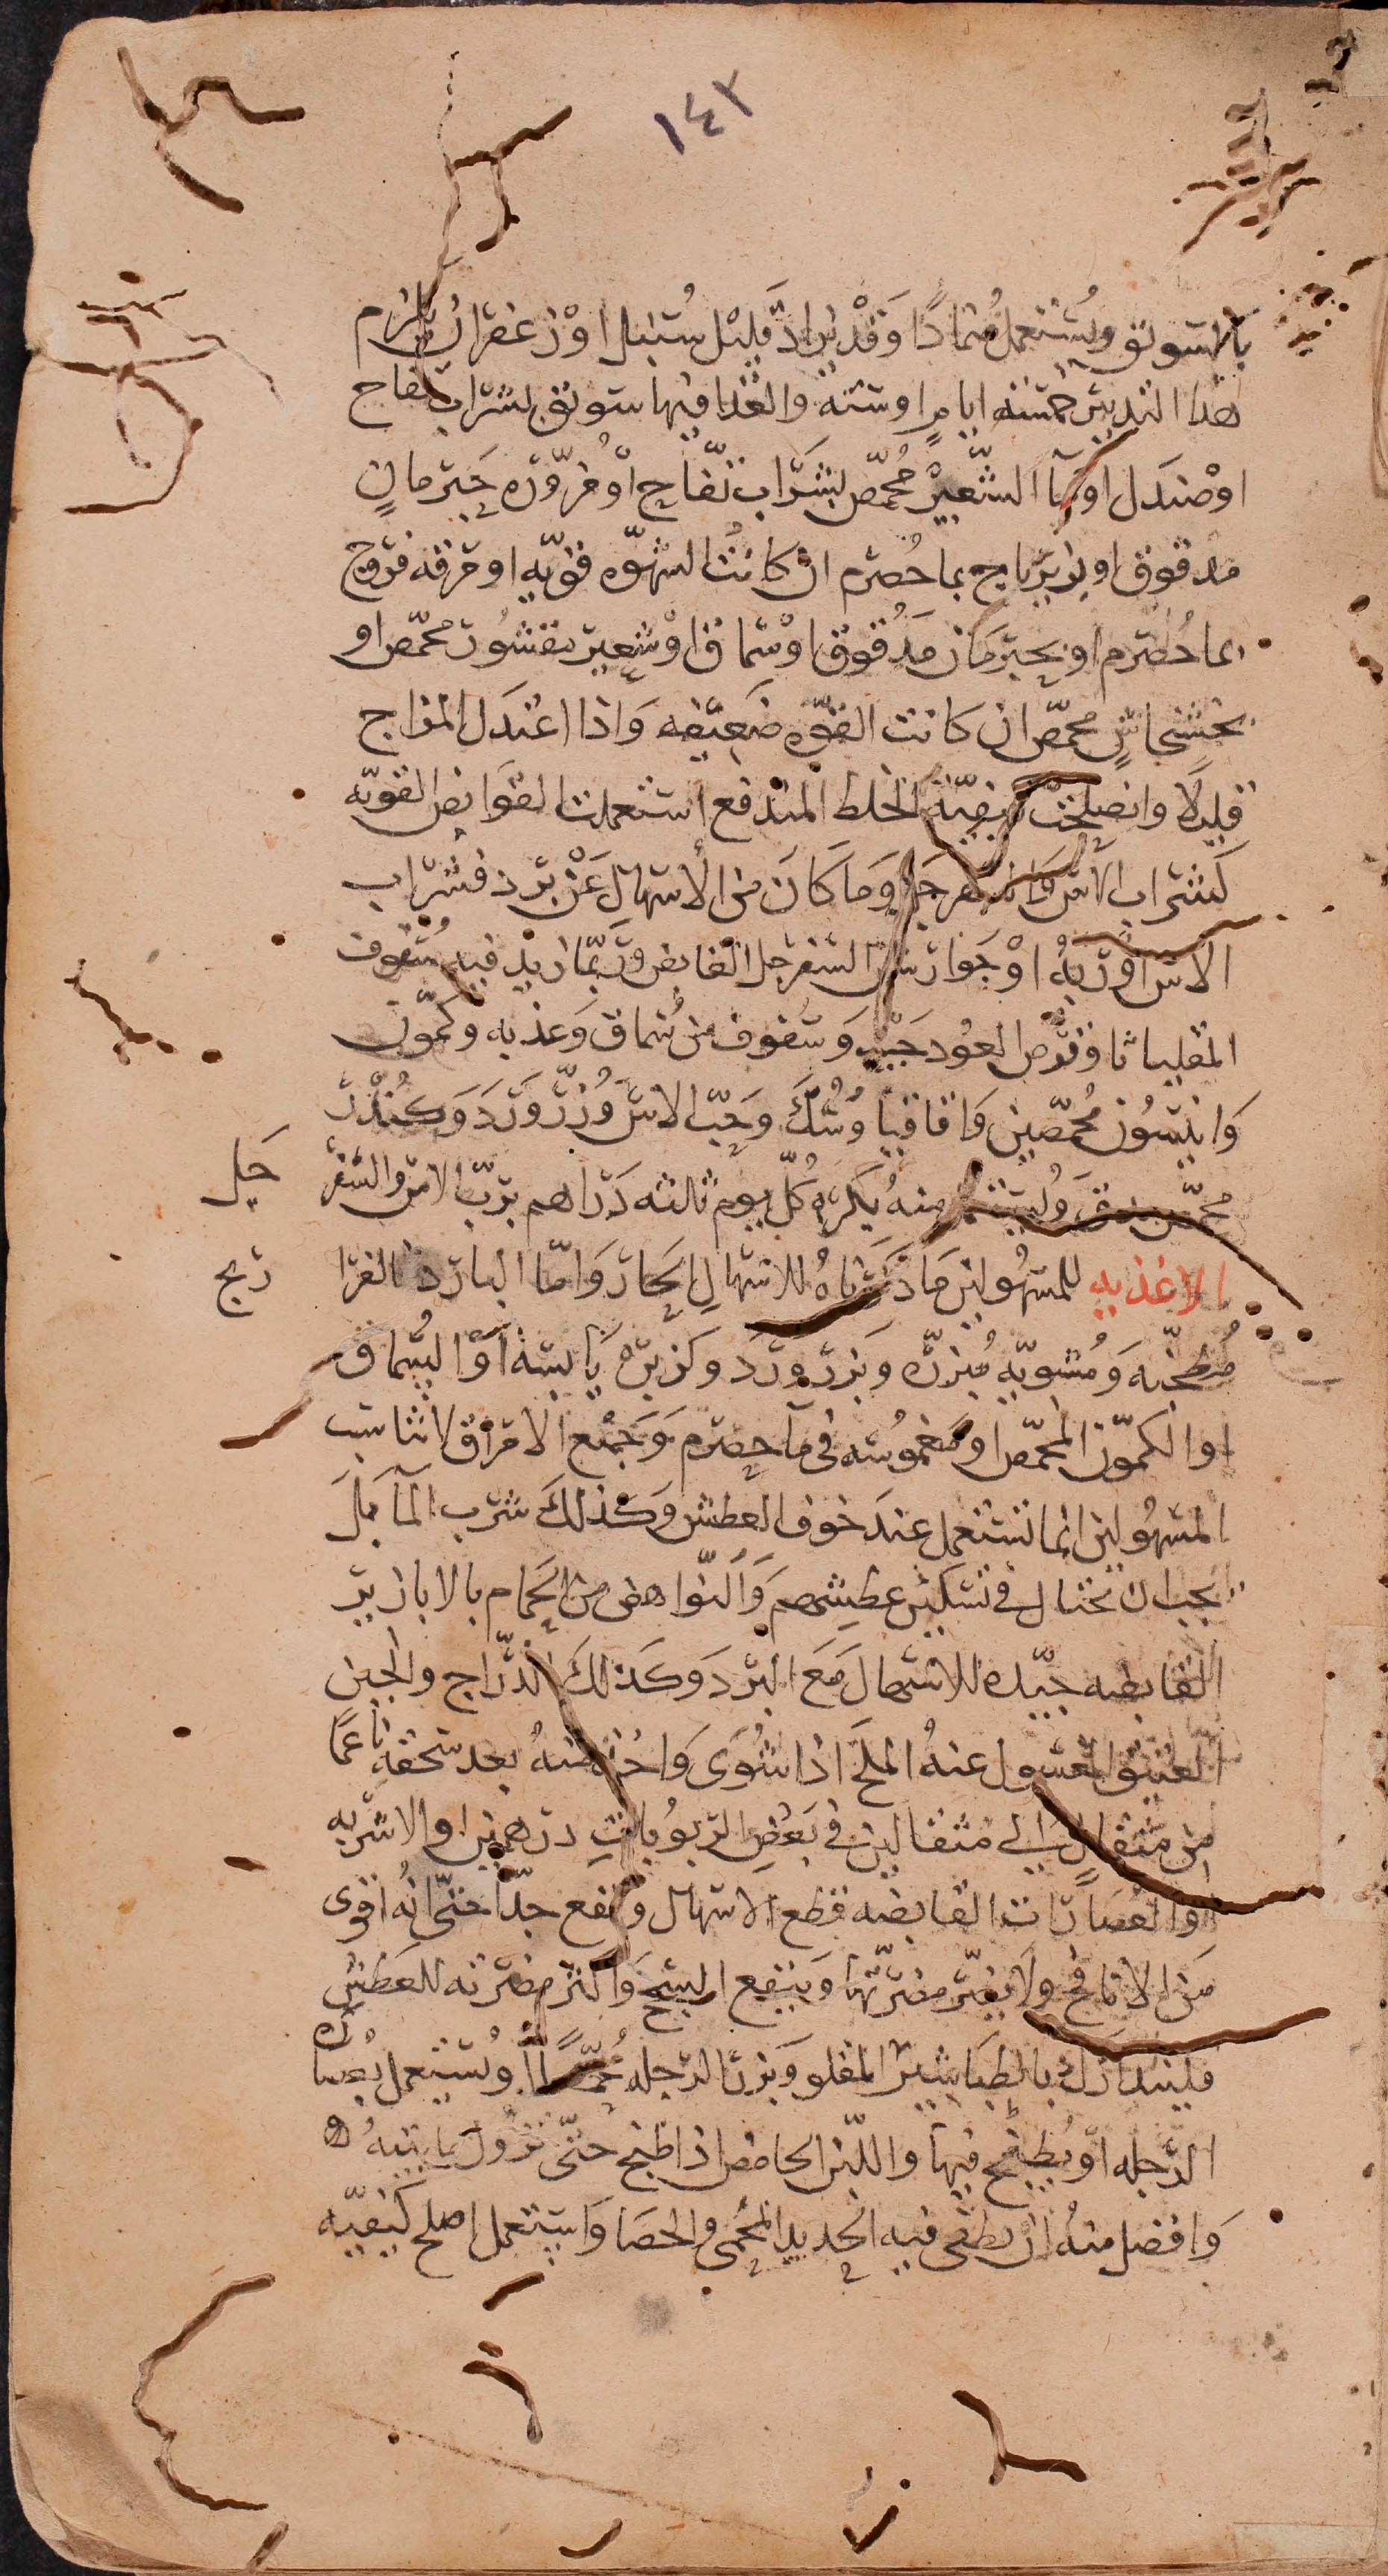 ١٤٢
بالسويق ويُستعمل ضمادًا وَقَدْ يزاد قليل سُنبل اوْ زعفران يلزم
هذا التدبير خمسه ايام اوسته والغذا فيها سويق بشراب تفاح
اوْصندل او مآ الشّعيرْ مُحمّص بشَرَاب تفّاح اوْ مُزوّره حَبّ رمانٍ
مدقوق او زيرباج بما حُصرم ان كانت الشهوّه قويّه او مرقه فروج
بما حُصرم او بحبّ رمَان مَدقوق اوْ سماق اوْ شعير مقشور محمّص او
بخشخاشٍ محمّص ان كانت القوّه ضَعيفه وَاذا اعتدَل المزاج
قليلًا وانصلحتْ كيفيّة الخلط المندفع استعملت القوَابض القويّه
كشراب الاس وَالسفرجل وَمَا كانَ من الأسهال عَنْ برد فشراب
الاس اوْربّهُ اوْ جَوارش السّفرجل القابض وَربّما زيد فيه سُفوف
المقلياثا وقرص العُود جَيّد وَسفوف من سُماق وَغذبه وكمّون
وَانيسُون مُحمّصين وَاقاقيا وَسُكّ وحَبّ الاس وَبزر وَرَد وَكُنْدُر
محمّص يدق وَيُستف منهُ بكره كلّ يوم ثالثه دَرَاهم بربّ الاس والسّفر جل
الاغذيه للمسهُولين مَا ذكرناهُ للاسهالِ الحَار وَامّا البارد فالفرا ريج
مُطجّنه وَمُشويّه مُبزرّه وبَزر وَرَد وكزبرْه يابسَة اوْ السُّماق
او الكمّون المحمّص او مغموُسه في مآ حصرم وَجَميْع الامرَاق لا تناسب
المسهُولين انما تستعمل عندَ خوف العطش وَكذلكَ شرب المآ بَلْ
يجب ان تختال في تسكين عطشهم وَالنّواهض من الحَمام بالابازير
القابضه جيّده للاسهال مَعَ البَرْد وَكذلكَ الدّراج والجبن
العتيق المغسول عنهُ الملحَ اذا شُوَى وَاخذ منهُ بعد سَحقه ناعمًا
من مثقالٍ الى مثقالين في بَعْض الربُوبات درهمين او الاشربه
اوَ العُصَارَات القابضه قطع الاسهال ونفع جدًّا حتّى انهُ اقوى
مَن الانافخ وَلا يضرّ مضرّتها وَينفع السحج وَاكثر مضرته للعَطش
فليتدَارَك بالطباشير المقلو وَبزر الرّجله مُحمّصًا ويُستعمل بُعصاره
الرّجله او يُطبخ فيها واللّبن الحامض اذا طبخ حتّى تزول مايتيهُ
وَافضل منهُ ان يطفى فيه الحديد المحُمى والحصَا وَاستعمل اصلح كيفيّه